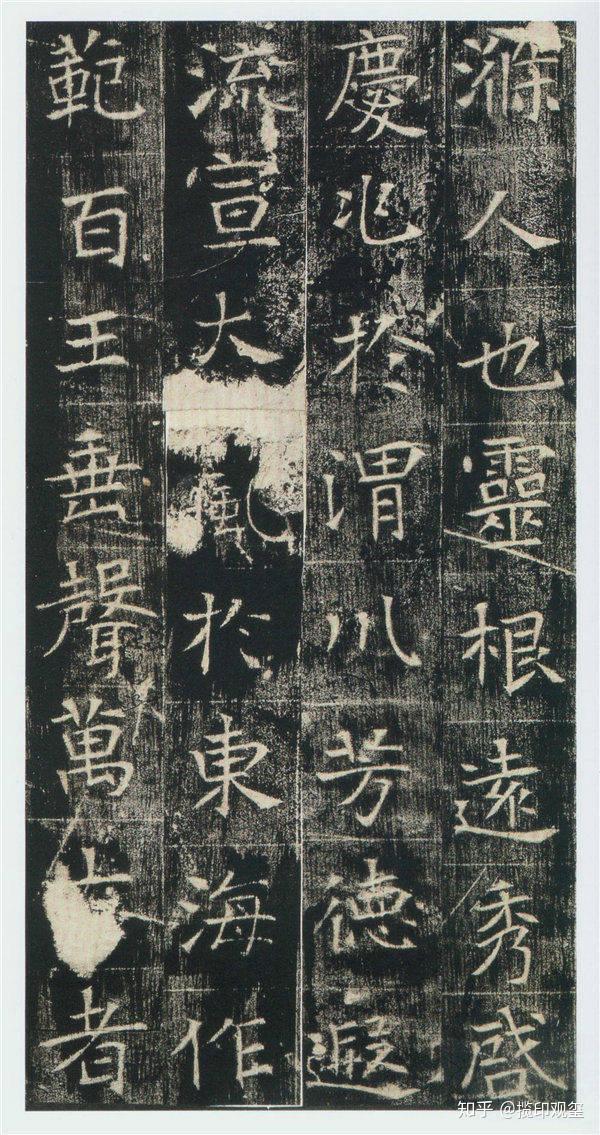 滌人也靈根遠秀啓
慶兆於渭川芳德遐
流宣大風於東海作
範百王垂聲萬古者
知乎 @揽印观玺